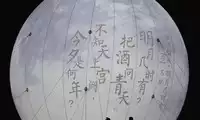 明月几时有?
把酒问青天
不知天上宫阙,
今夕是何年?